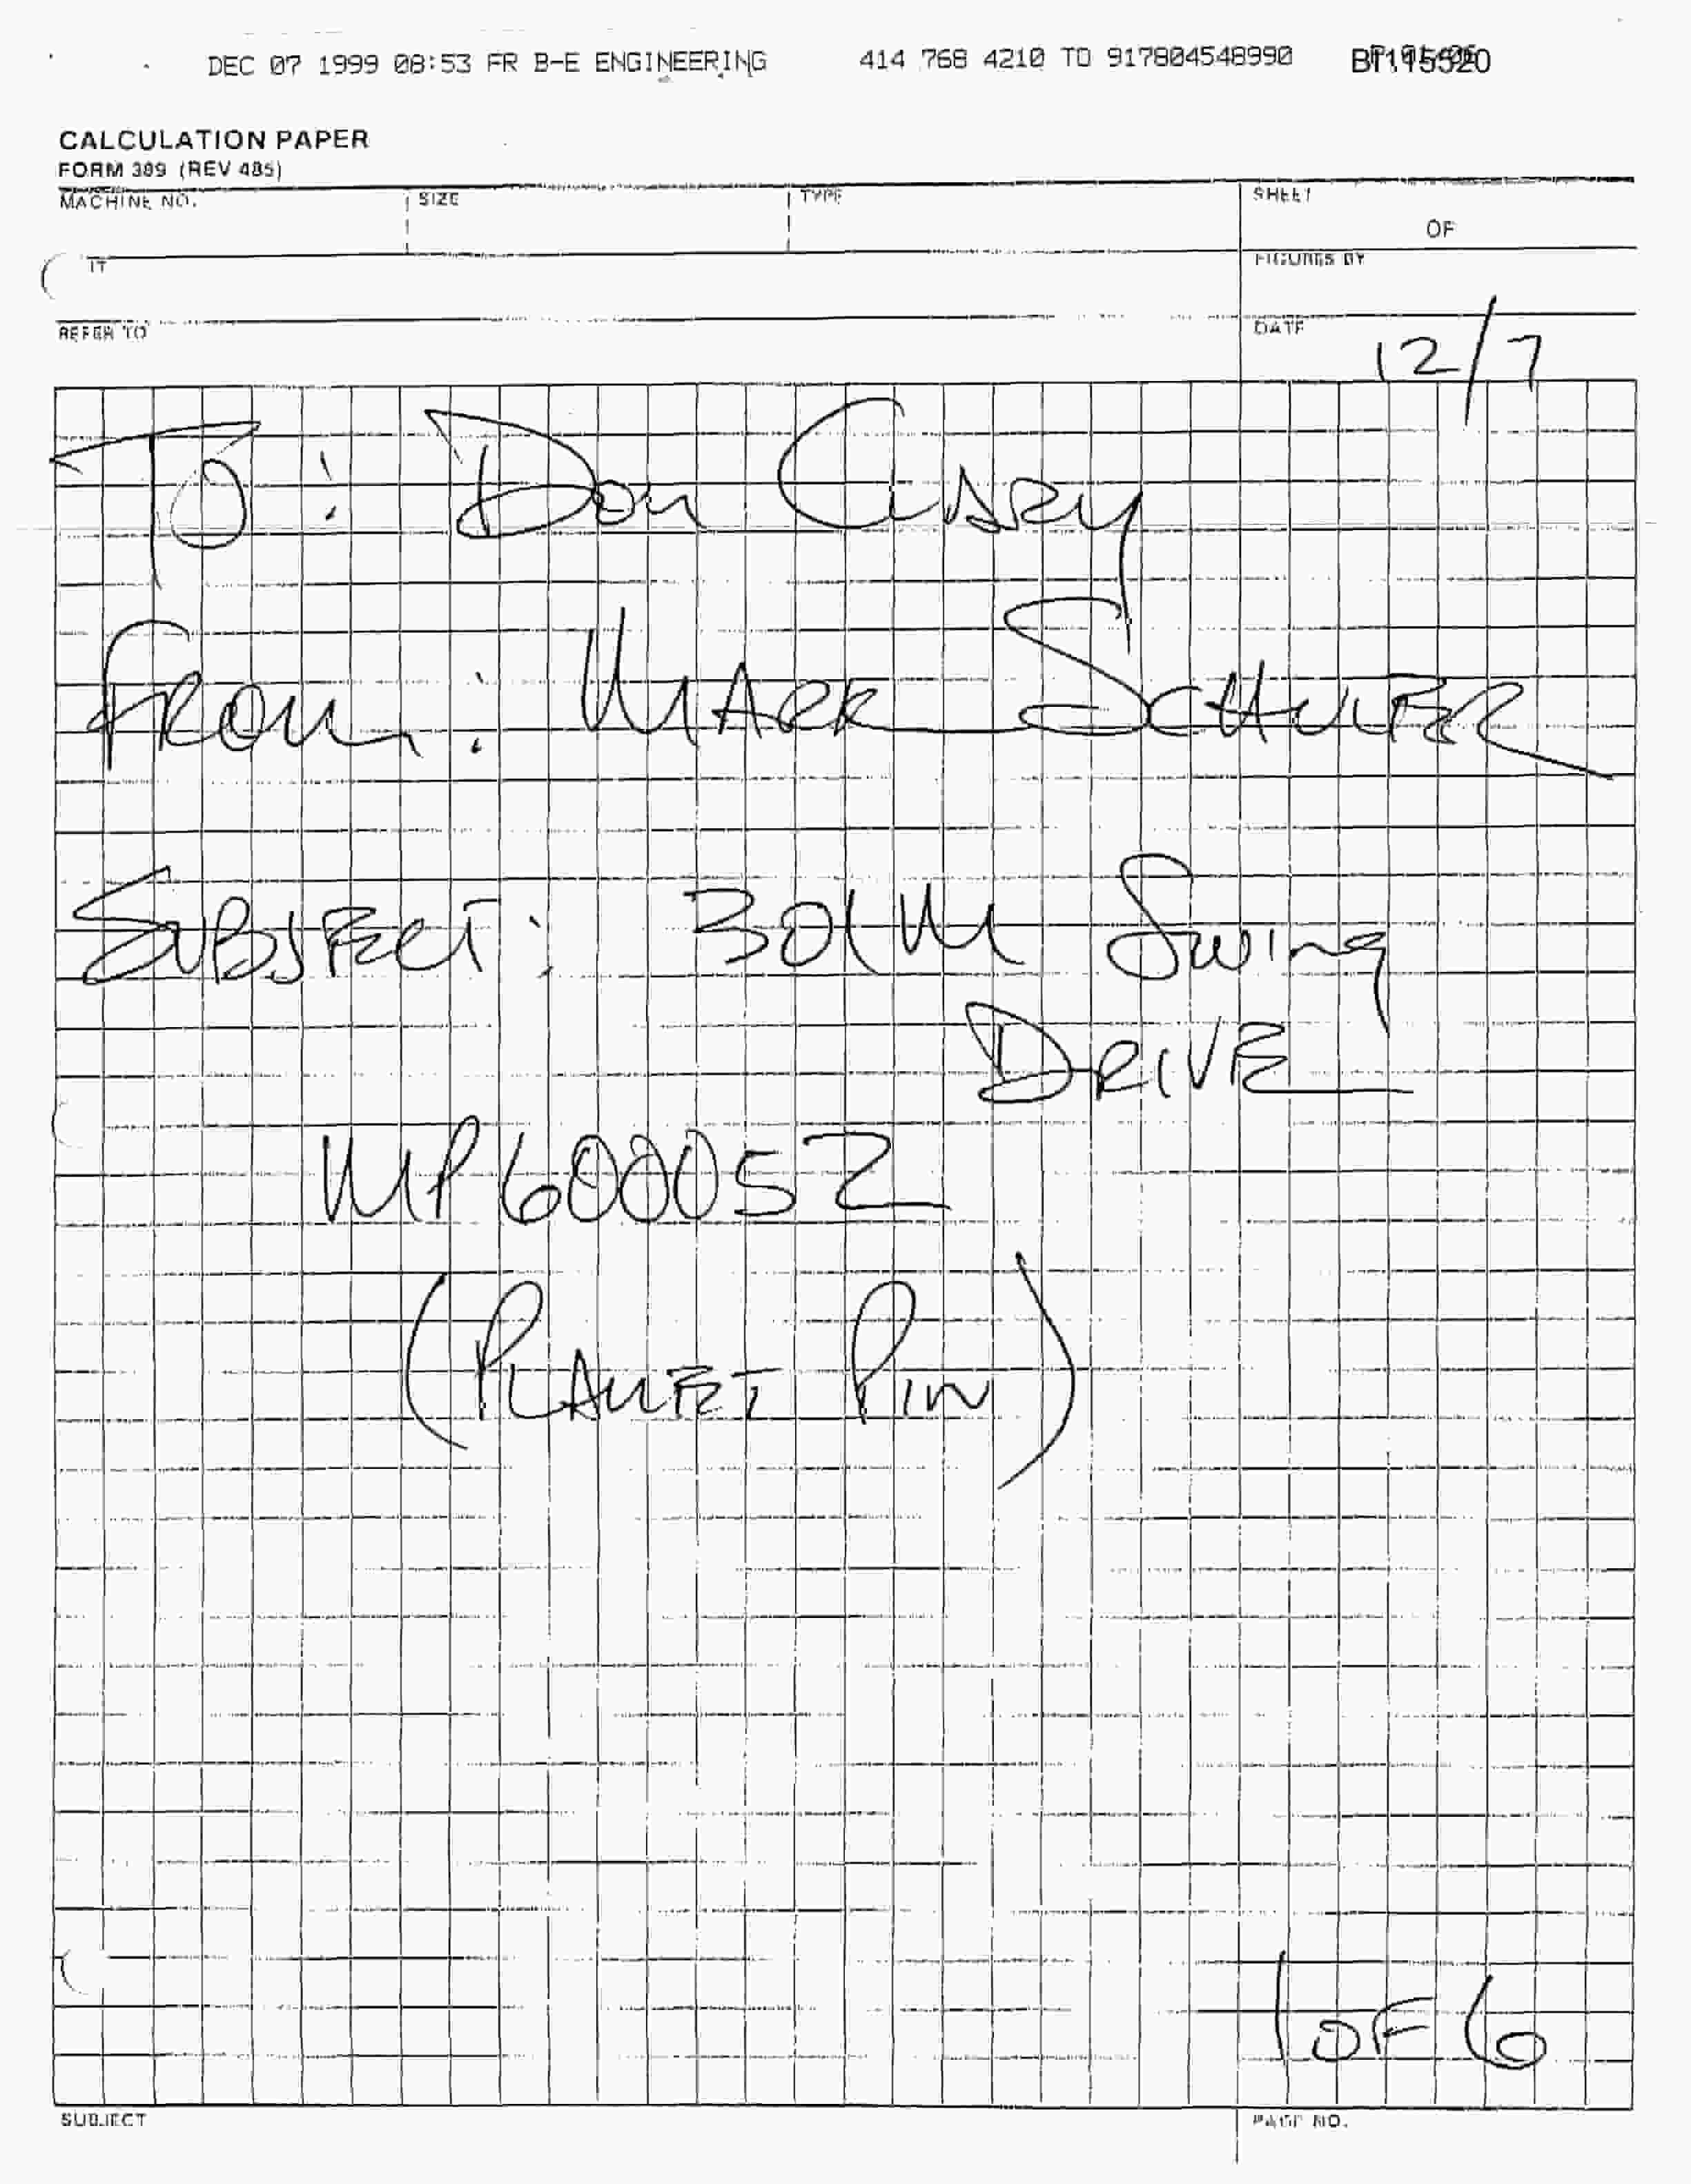 DEC 07 1999 08:53 FR B-E ENGINEERING 414 768 4210 TO 917804548990
CALCULATION PAPER
FORM 389 (REV 485)
MACHINE NO. SIZE TYPE SHEET
OF
FIGURES BY
REFER TO DATE 12/7
TO: DON CLARY
FROM: MARK SCHULER
SUBJECT: 301M SWING
DRIVE
MP600052
(PLANET PIN)
1 OF 6
SUBJECT PAGE NO.